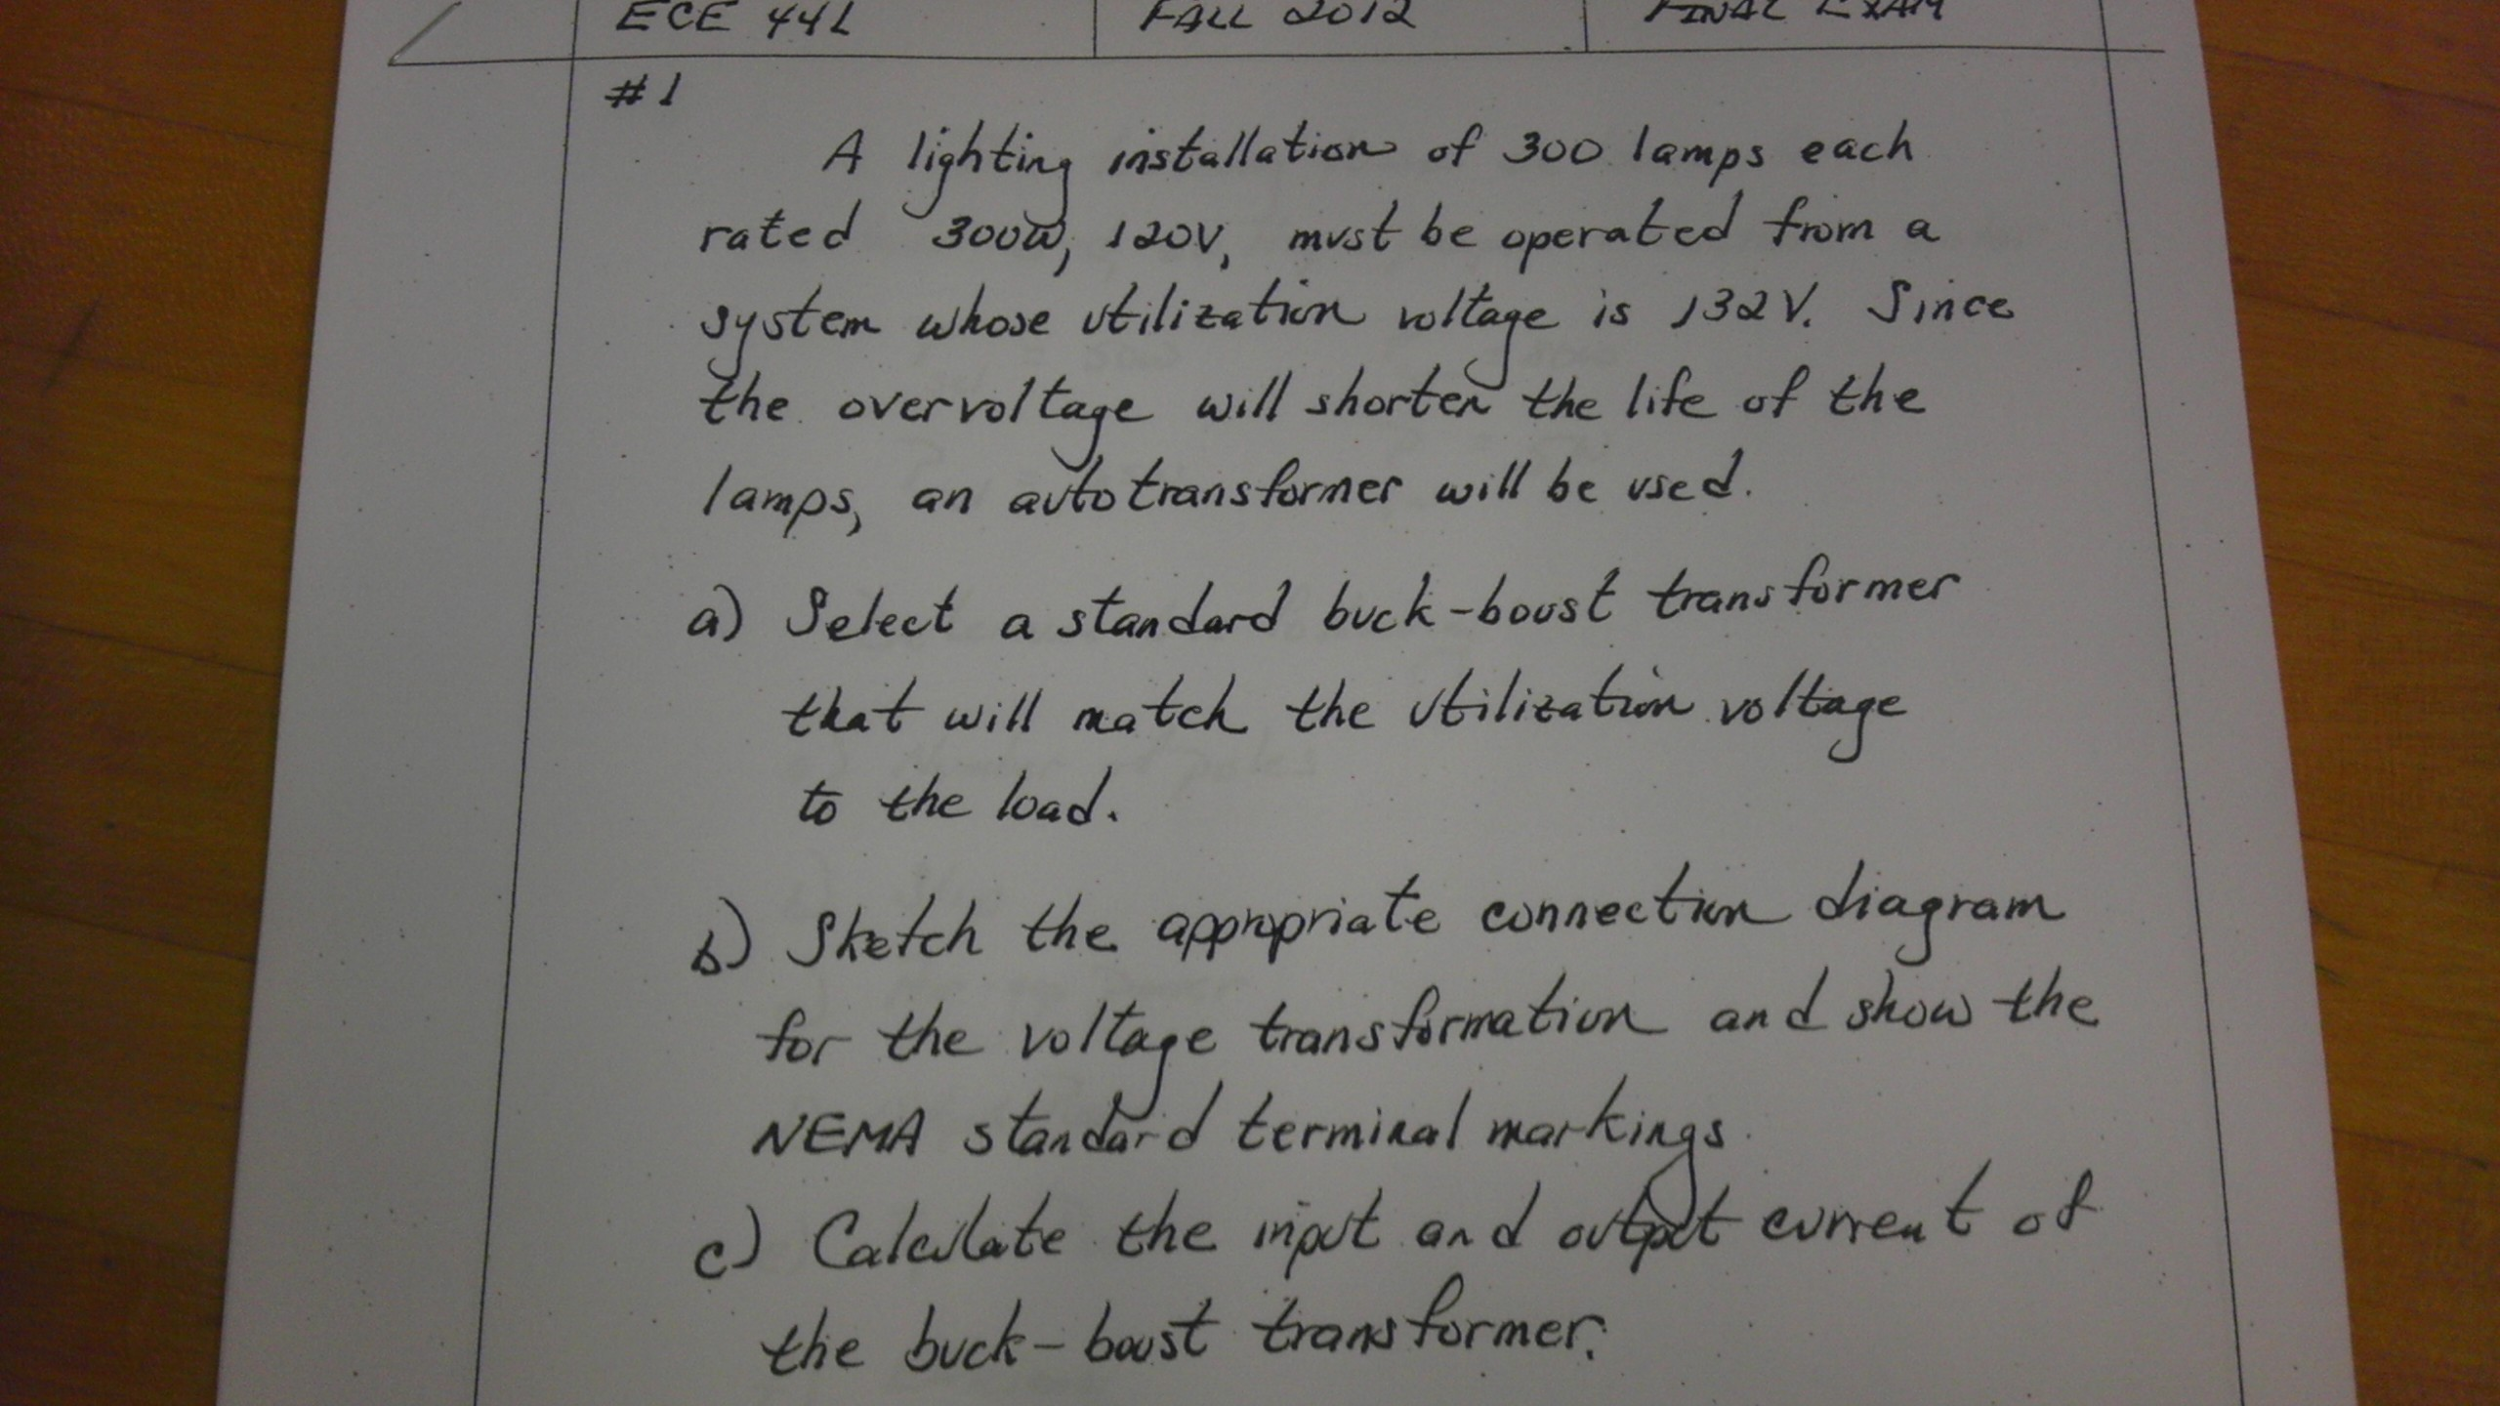 ECE 441
FALL 2012
FINAL EXAM
#1
A lighting installation of 300 lamps each
rated 300W, 120V, must be operated from a
system whose utilization voltage is 132V. Since
the overvoltage will shorten the life of the
lamps, an autotransformer will be used.
a) Select a standard buck-boost transformer
that will match the utilization voltage
to the load.
b) Sketch the appropriate connection diagram
for the voltage transformation and show the
NEMA standard terminal markings
c) Calculate the input and output current of
the buck-boost transformer.